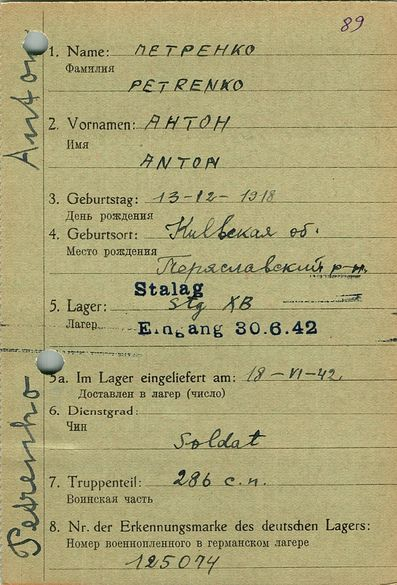 89
1. Name: ПЕТРЕНКО
Фамилия
PETRENKO
2. Vornamen: АНТОН
Имя
ANTON
3. Geburtstag: 13-12-1918
День рождения
4. Geburtsort: Киевская об.
Место рождения
Переславский р-н.
Stalag
5. Lager: Stg XB
Лагер
Eingang 30.6.42
5a. Im Lager eingeliefert am: 18-VI-42.
Доставлен в лагер (число)
6. Dienstgrad:
Чин
Soldat
7. Truppenteil: 286 с.п.
Воинская часть
8. Nr. der Erkennungsmarke des deutschen Lagers:
Номер военнопленного в германском лагере
125074
Petrenko Anton